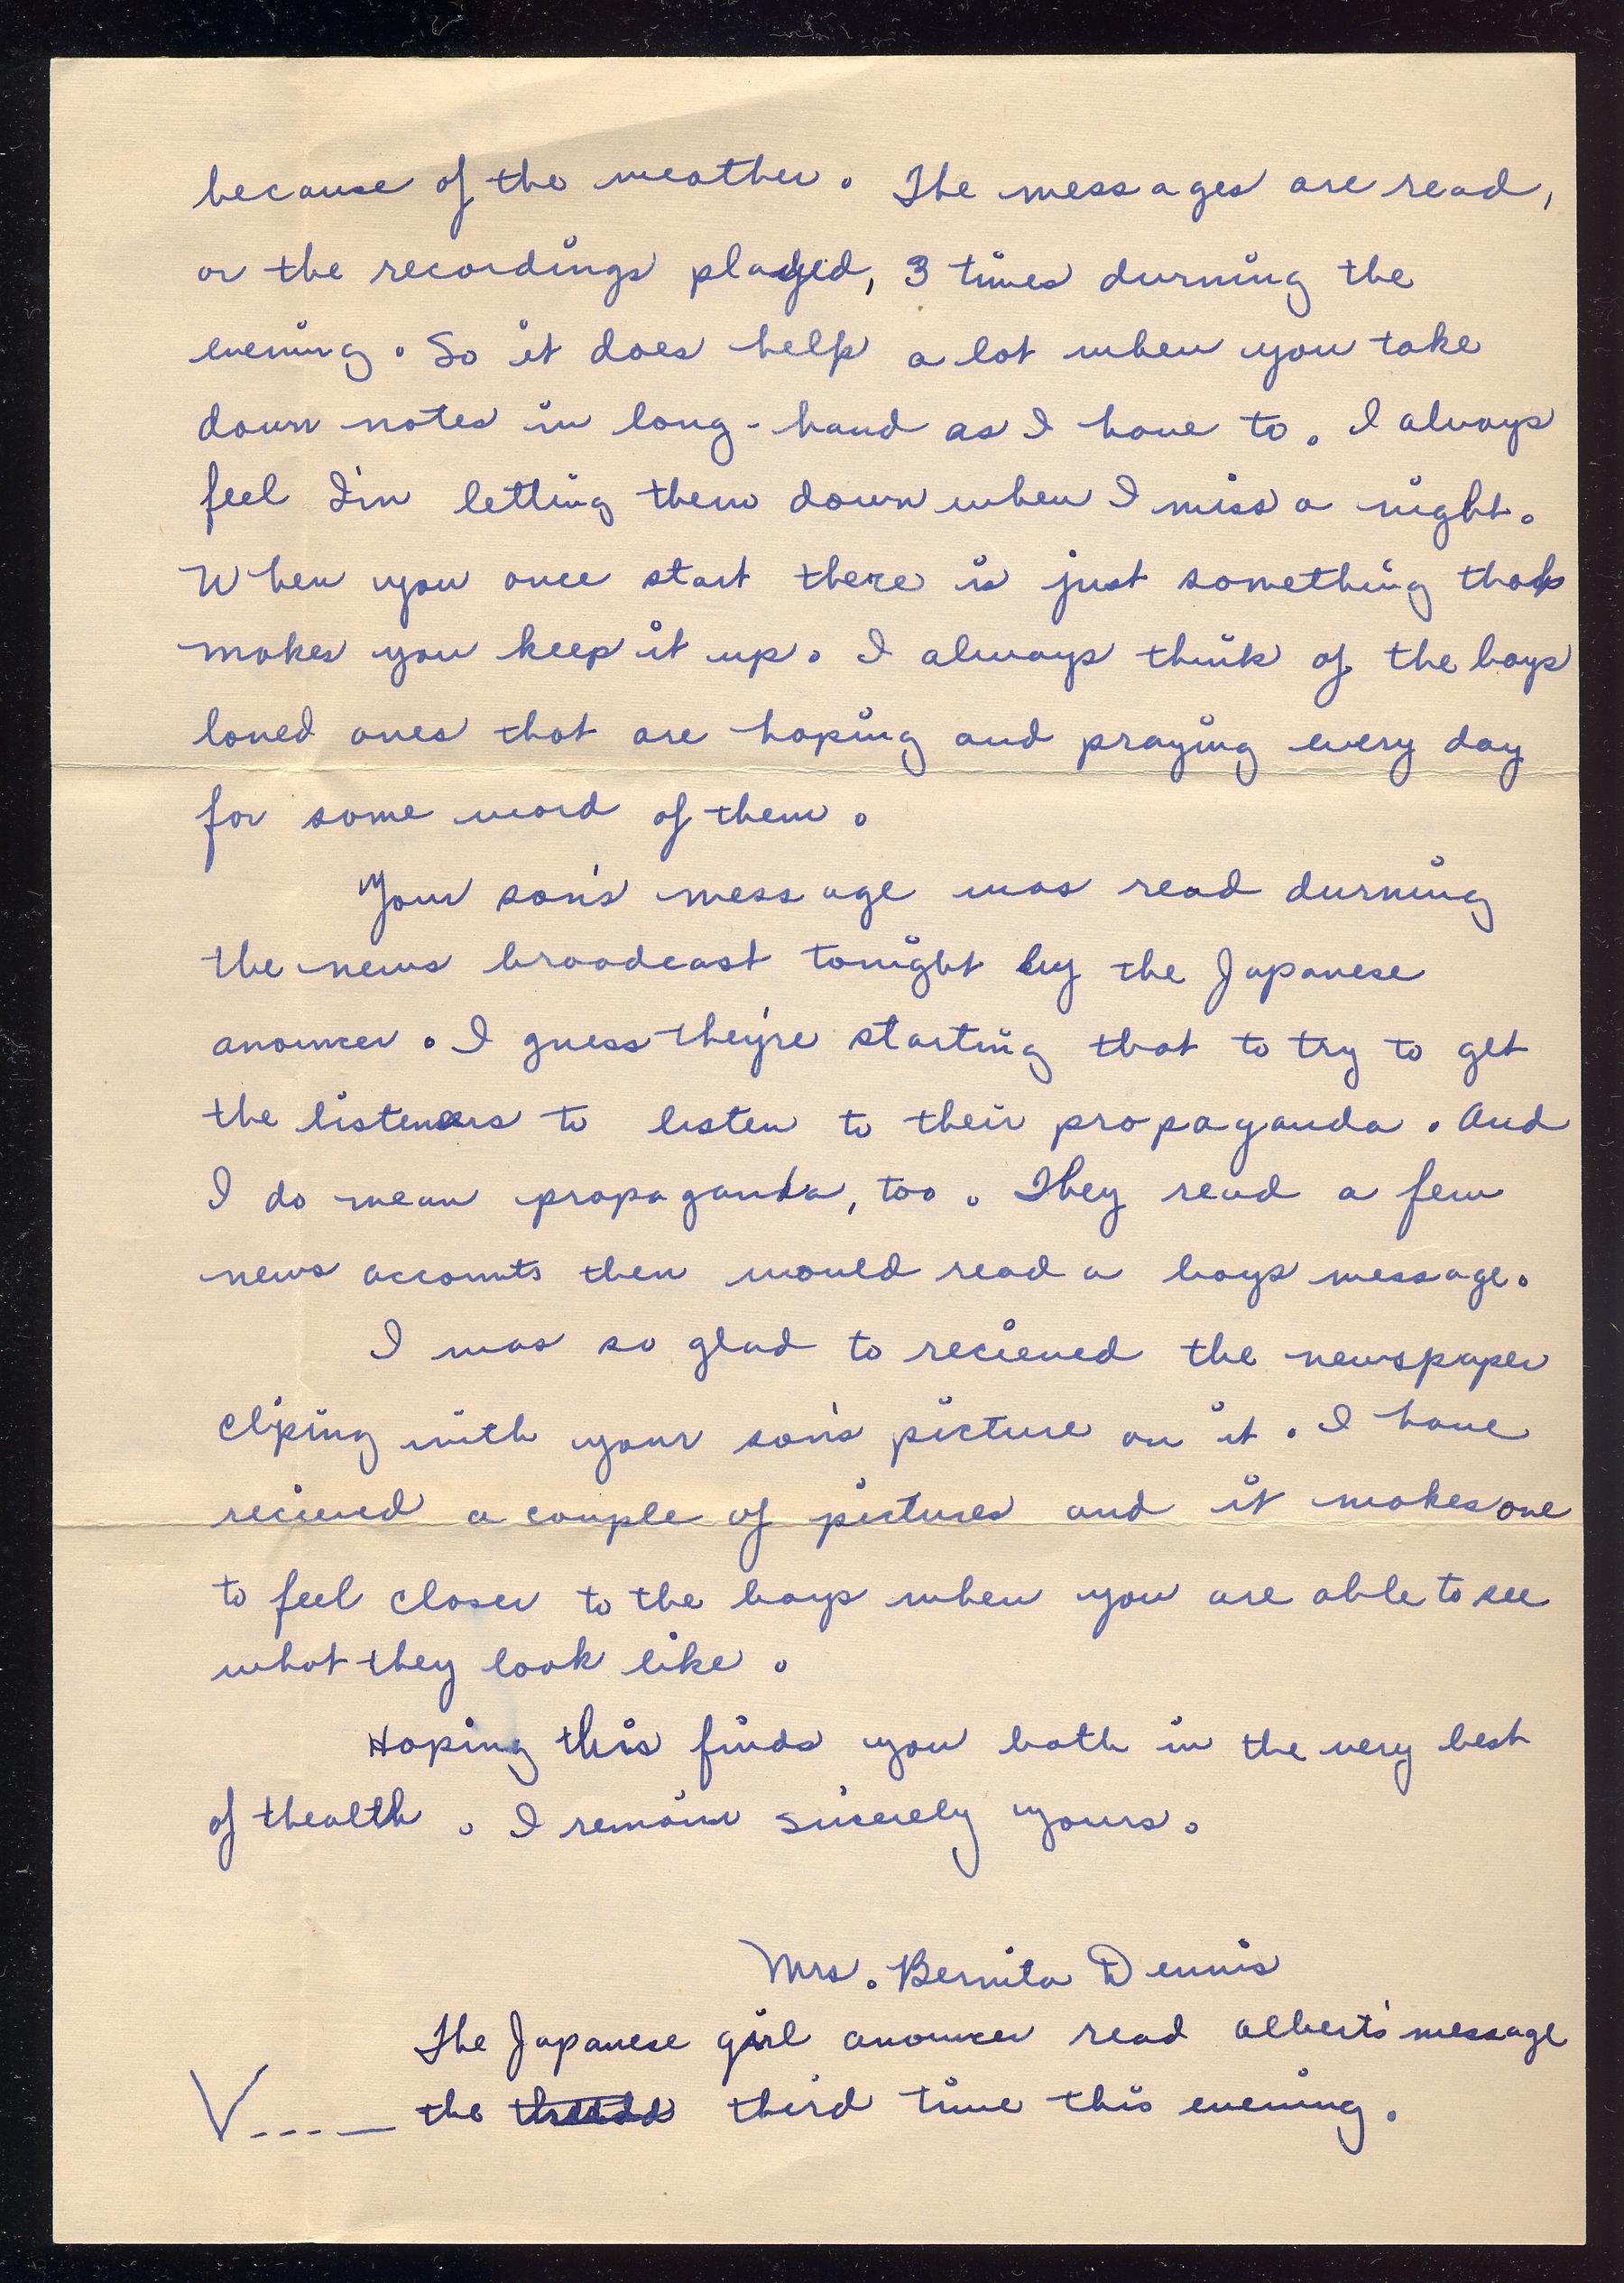 because of the weather. The messages are read,
or the recordings played, 3 times durning the
evening. So it does help a lot when you take
down notes in long-hand as I have to. I always
feel I'm letting them down when I miss a night.
When you once start there is just something that
makes you keep it up. I always think of the boys
loved ones that are hoping and praying every day
for some word of them.
Your son's message was read durning
the news broadcast tonight by the Japanese
anouncer. I guess they're starting that to try to get
the listeners to listen to their propaganda. And
I do mean propaganda, too. They read a few
news accounts then would read a boys message.
I was so glad to recieved the newspaper
cliping with your son's picture on it. I have
recieved a couple of pictures and it makes one
to feel closer to the boys when you are able to see
what they look like.
Hoping this finds you both in the very best
of thealth. I remain sincerely yours.
Mrs. Bernita Dennis
The Japanese girl anouncer read Albert's message
V...— the third time this evening.